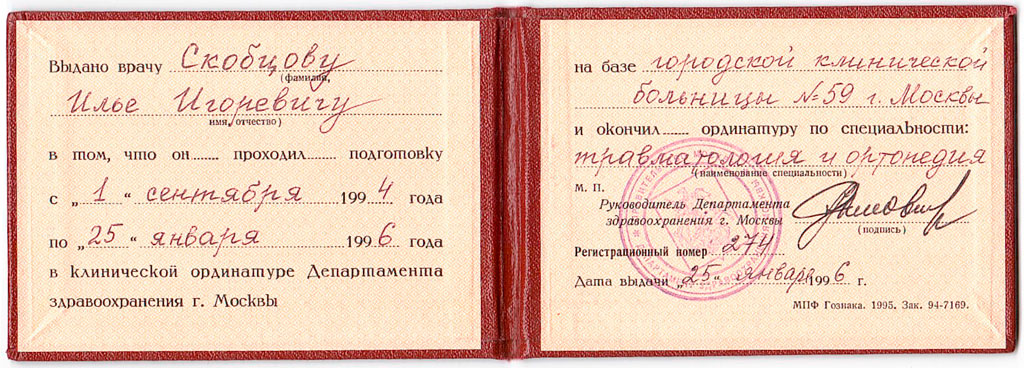 Выдано врачу Скобцову
(фамилия,
Илье Игоревичу
имя, отчество)
в том, что он проходил подготовку
с „ 1 “ сентября 1994 года
по „ 25 “ января 1996 года
в клинической ординатуре Департамента
здравоохранения г. Москвы
на базе городской клинической
больницы №59 г. Москвы
и окончил ординатуру по специальности:
травматология и ортопедия
(наименование специальности)
М. П.
Руководитель Департамента
здравоохранения г. Москвы
(подпись)
Регистрационный номер 274
Дата выдачи „25“ января 1996 г.
МПФ Гознака. 1995. Зак. 94-7169.